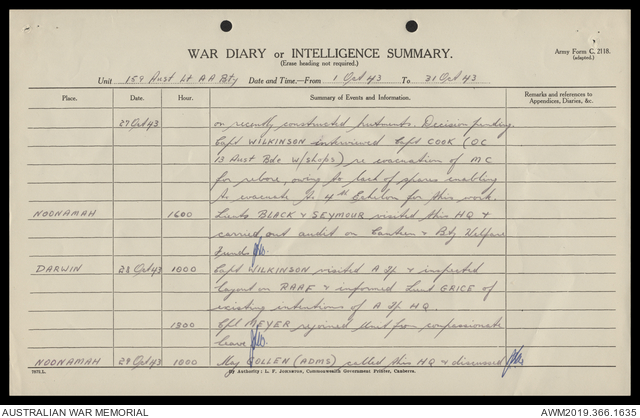 WAR DIARY or INTELLIGENCE SUMMARY.
(Erase heading not required.)
Army Form C. 2118.
(adapted.)
Unit 159 Aust Lt AA Bty Date and Time.—From 1 Oct 43 To 31 Oct 43
Place. Date. Hour. Summary of Events and Information. Remarks and references to
Appendices, Diaries, &c.
27 Oct 43 on recently constructed hutments. Decision pending.
Capt WILKINSON interviewed Capt COOK (OC
13 Aust Bde W/shops) re evacuation of MC
for rebore, owing to lack of spares enabling
to evacuate to 4th Echelon for this work.
NOONAMAH 1600 Lieuts BLACK & SEYMOUR visited this HQ &
carried out audit on Canteen & Bty Welfare
Funds
DARWIN 28 Oct 43 1000 Capt WILKINSON visited A Tp & inspected
layout on RAAF & informed Lieut GRICE of
existing intentions of A Tp HQ.
1300 Cpl MEYER rejoined Unit from compassionate
leave
NOONAMAH 29 Oct 43 1000 Maj COLLEN (ADMS) called this HQ & discussed
By Authority: L. F. Johnston, Commonwealth Government Printer, Canberra.
AUSTRALIAN WAR MEMORIAL
AWM2019.366.1635